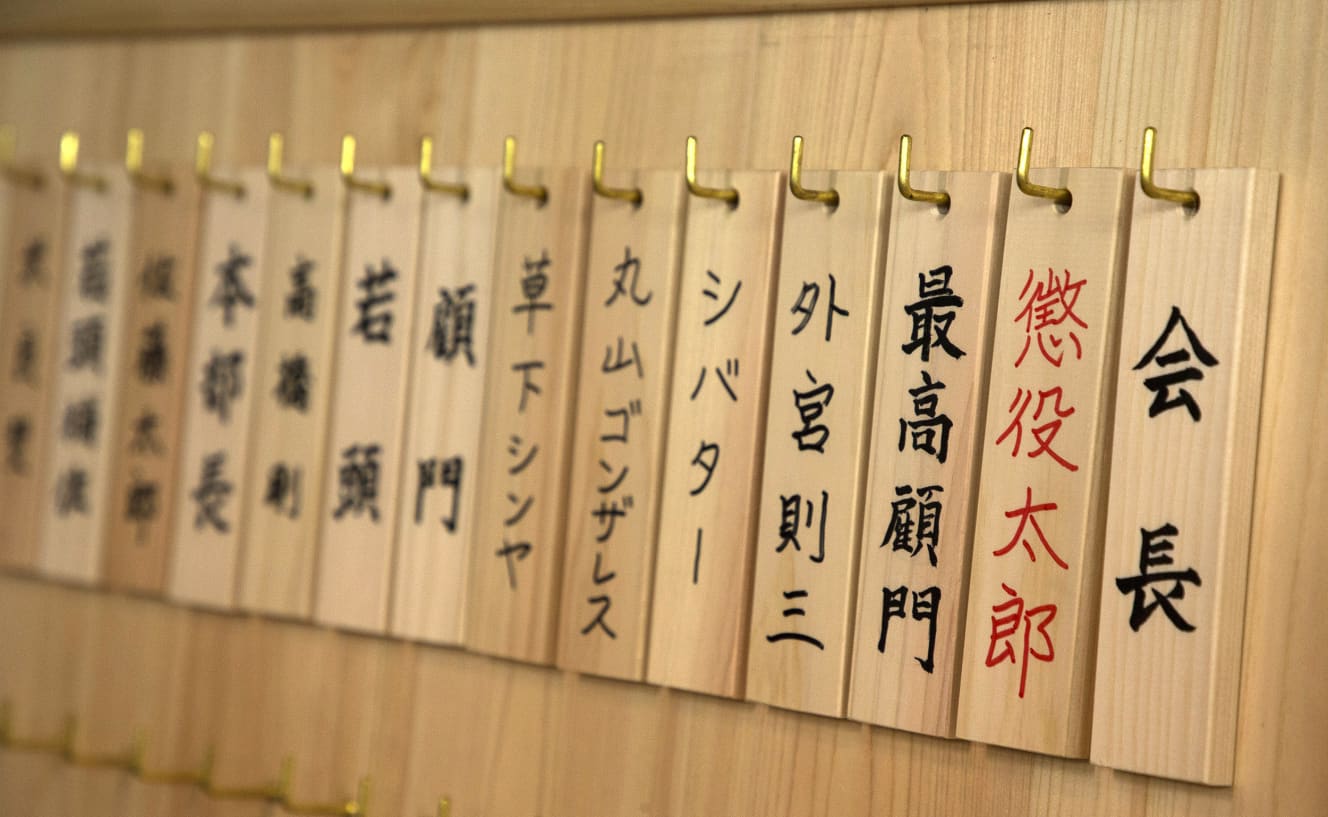 会長
懲役太郎
最高顧問
外宮則三
シバター
丸山ゴンザレス
草下シンヤ
顧問
若頭
高橋利
本部長